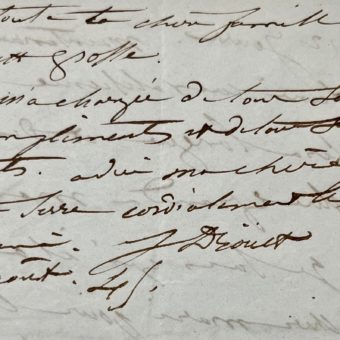 toute ta chère famille
grosse.
m'a chargée de tout
compliments et de tout
adieu ma chère
serre cordialement
J Droüet
août. 45.